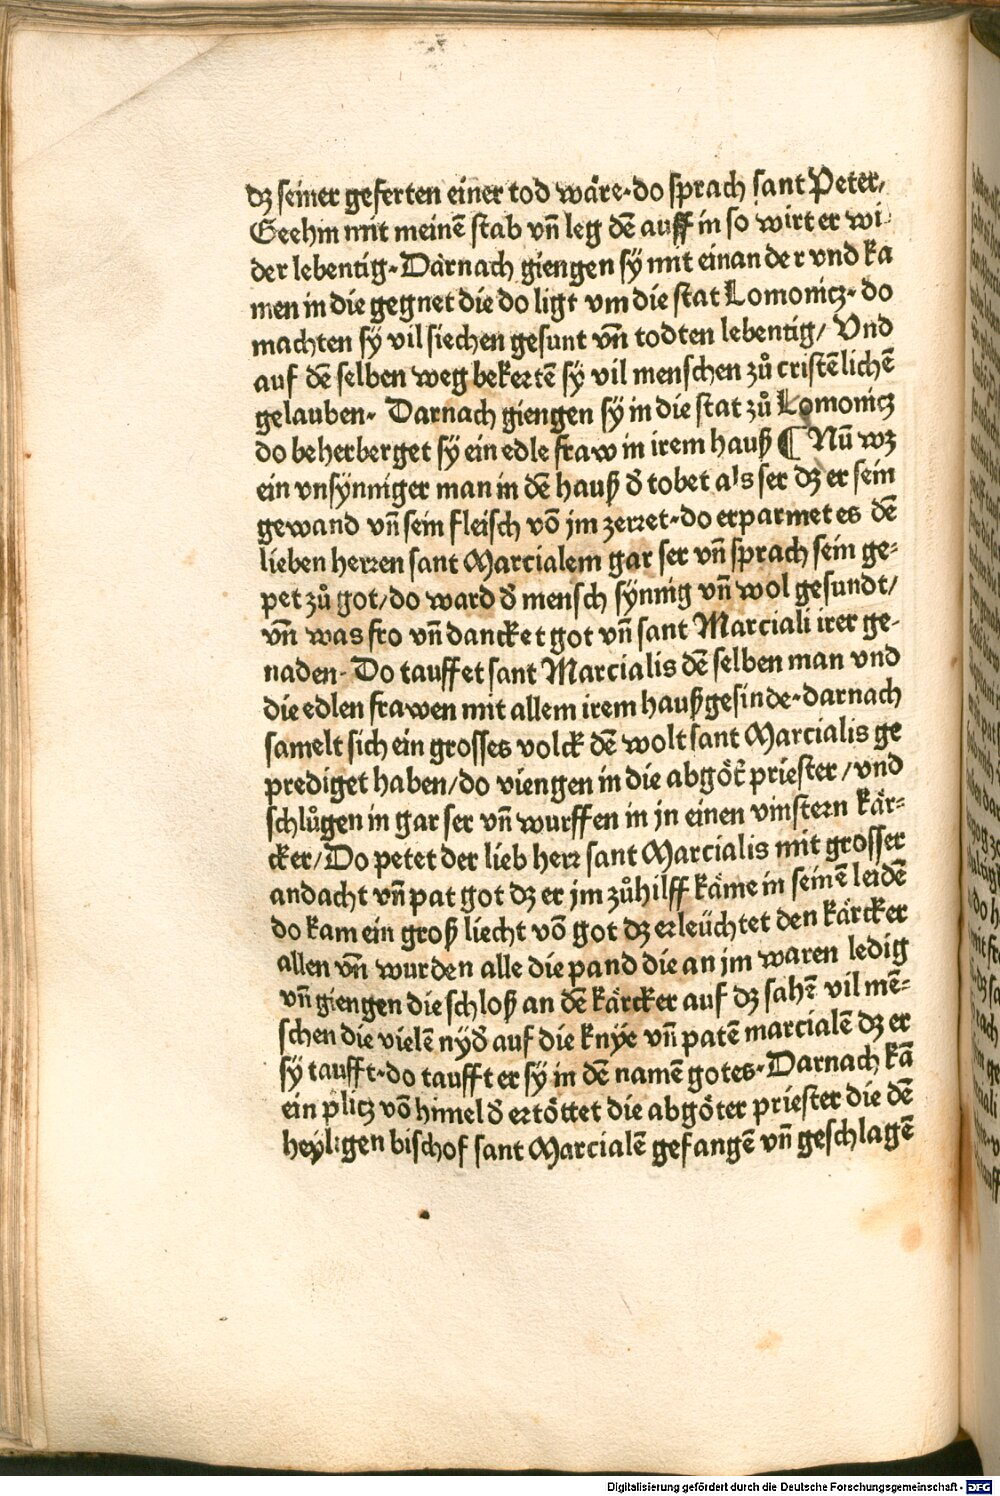 dz seiner geferten einer tod wäre·do sprach sant Peter/
Geehin mit meinē stab vn̄ leg dē auff in so wirt er wi-
der lebentig·Darnach giengen sy mit einander vnd ka
men in die gegnet die do ligt vm die stat Lomonicz·do
machten sy vil siechen gesunt vn̄ todten lebentig/ Vnd
auf dē selben weg bekertē sy vil menschen zů cristēlichē
gelauben· Darnach giengen sy in die stat zů Lomonicz
do beherberget sy ein edle fraw in irem hauß ¶ Nū wz
ein vnsynniger man in dē hauß d̄ tobet als ser dz er sein
gewand vn̄ sein fleisch vō jm zerret·do erparmet es dē
lieben herren sant Marcialem gar ser vn̄ sprach sein ge-
pet zů got/do ward d̄ mensch synnig vn̄ wol gesundt/
vn̄ was fro vn̄ dancket got vn̄ sant Marciali irer ge-
naden· Do tauffet sant Marcialis dē selben man vnd
die edlen frawen mit allem irem haußgesinde·darnach
samelt sich ein grosses volck dē wolt sant Marcialis ge
prediget haben/do viengen in die abgöt̄ priester/vnd
schlůgen in gar ser vn̄ wurffen in jn einen vinstern kär-
cker/Do petet der lieb herr sant Marcialis mit grosser
andacht vn̄ pat got dz er jm zůhilff käme in seinē leidē
do kam ein groß liecht vō got dz erleüchtet den kärcker
allen vn̄ wurden alle die pand die an jm waren ledig
vn̄ giengen die schloß an dē kärcker auf dz sahē vil mē-
schen die vielē nyd̄ auf die knye vn̄ patē marcialē dz er
sy taufft·do taufft er sy in dē namē gotes·Darnach kā
ein plicz vō himel d̄ ertöttet die abgöter priester die dē
heyligen bischof sant Marcialē gefangē vn̄ geschlagē
Digitalisierung gefördert durch die Deutsche Forschungsgemeinschaft - DFG